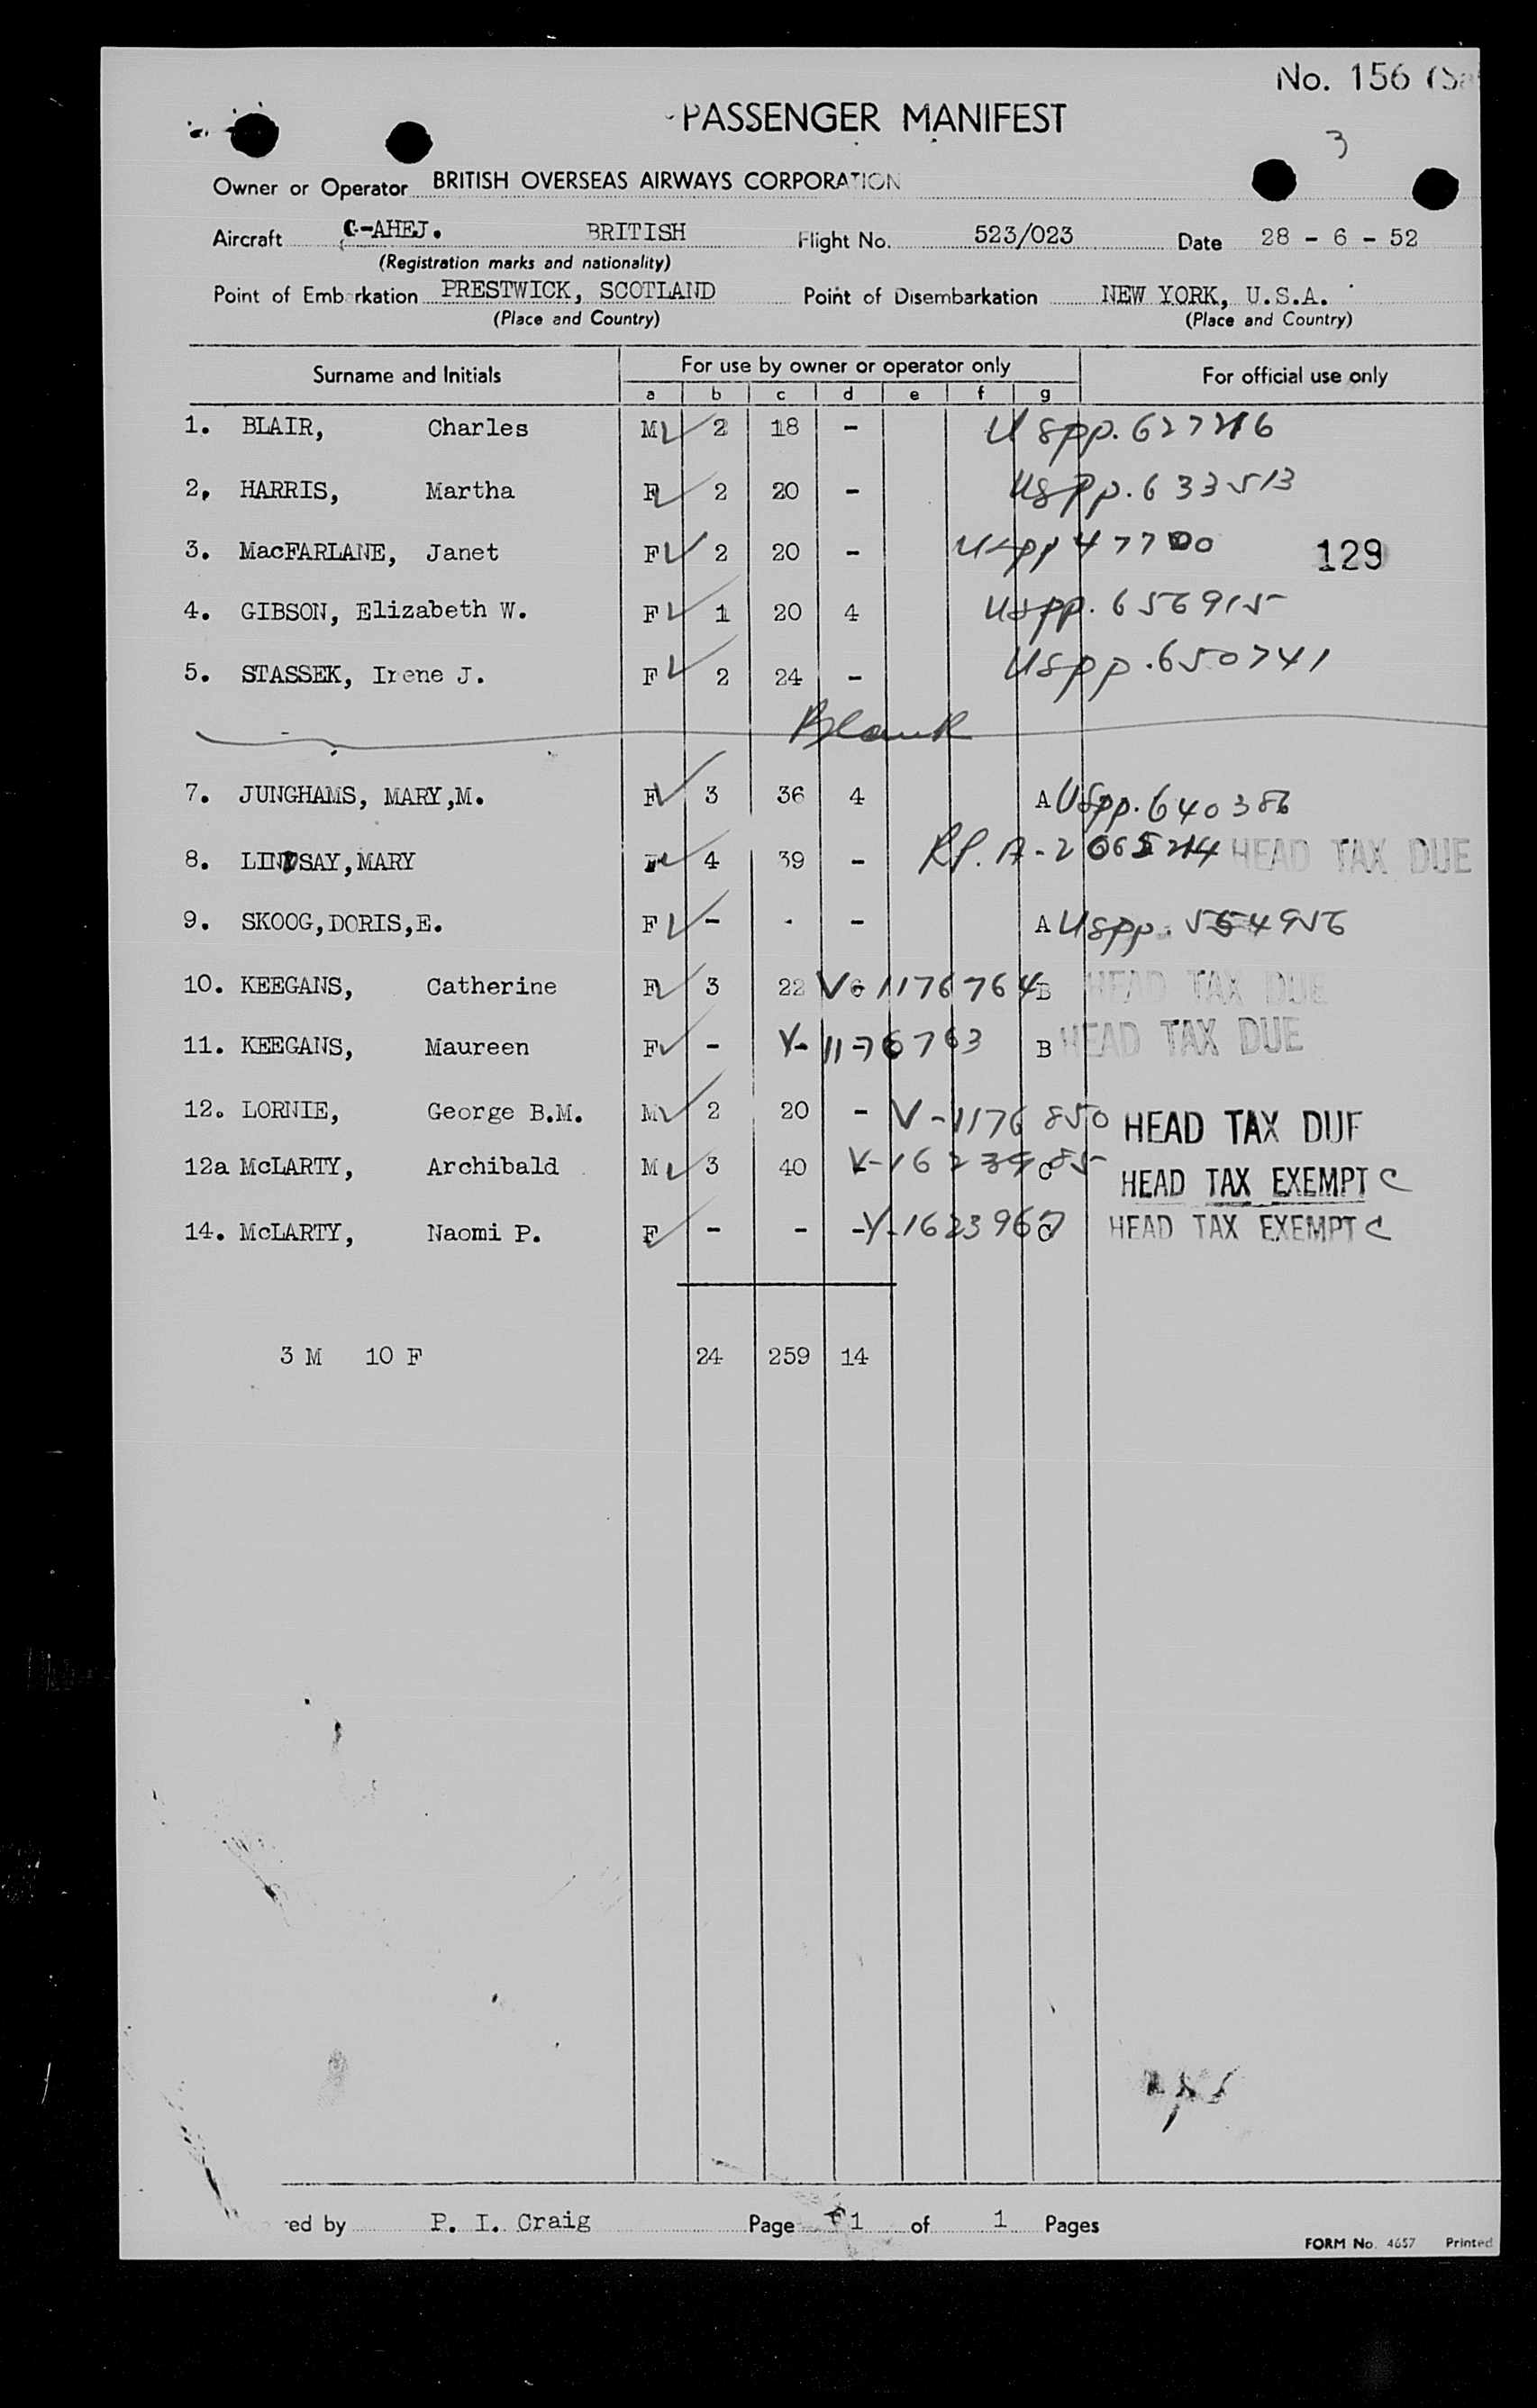 No. 156
PASSENGER MANIFEST
3
Owner or Operator BRITISH OVERSEAS AIRWAYS CORPORATION
Aircraft G-AHEJ. BRITISH Flight No. 523/023 Date 28 - 6 - 52
(Registration marks and nationality)
Point of Embarkation PRESTWICK, SCOTLAND Point of Disembarkation NEW YORK, U.S.A.
(Place and Country) (Place and Country)
Surname and Initials For use by owner or operator only For official use only
a b c d e f g
1. BLAIR, Charles M 2 18 - USpp. 627216
2. HARRIS, Martha F 2 20 - USpp. 633513
3. MacFARLANE, Janet F 2 20 - USpp 47700 129
4. GIBSON, Elizabeth W. F 1 20 4 USpp. 656915
5. STASSEK, Irene J. F 2 24 - USpp. 650741
Blank
7. JUNGHAMS, MARY,M. F 3 36 4 A USpp. 640386
8. LINDSAY,MARY F 4 39 - RP. A-2065214 HEAD TAX DUE
9. SKOOG,DORIS,E. F - - - A USpp. 554956
10. KEEGANS, Catherine F 3 22 6 V-1176764 B HEAD TAX DUE
11. KEEGANS, Maureen F - - - V-1176763 B HEAD TAX DUE
12. LORNIE, George B.M. M 2 20 - V-1176850 HEAD TAX DUE
12a McLARTY, Archibald M 3 40 - V-1623985 C HEAD TAX EXEMPT C
14. McLARTY, Naomi P. F - - - V-1623967 C HEAD TAX EXEMPT C
3 M 10 F 24 259 14
ed by P. I. Craig Page 1 of 1 Pages
FORM No. 4657 Printed